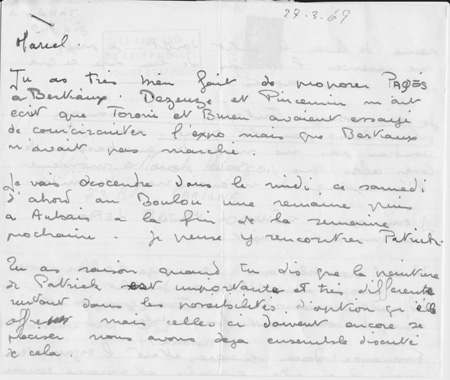 27.3.69
Marcel.
Tu as très bien fait de proposer PAGÈS
à Bertiaux. Dezeuze et Pincemin m'ont
écrit que Toroni et Buren avaient essayé
de courcircuiter l'expo mais que Bertiaux
n'avait pas marché.
Je vais descendre dans le midi, ce samedi
d'abord au Boulou une semaine puis
à Aubais à la fin de la semaine
prochaine. Je pense y rencontrer Patrick.
Tu as raison quand tu dis que la peinture
de Patrick est importante et très différente
surtout dans les possibilités d'option qu'elle
offre mais celles ci doivent encore se
préciser nous avons déjà ensemble discuté
de cela.